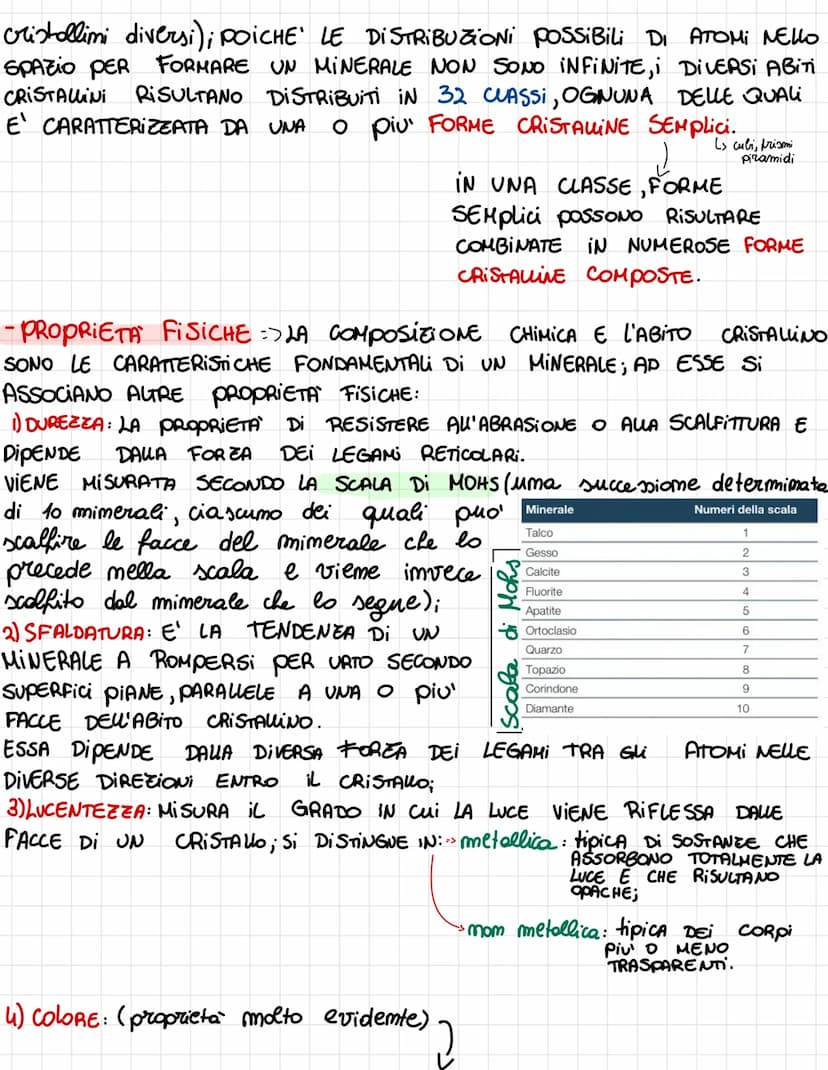 cristallini diversi); POICHE' LE DISTRIBUZIONI POSSIBILI DI ATOMI NELLO
SPAZIO PER FORMARE UN MINERALE NON SONO INFINITE, i DIVERSI ABITI
CRISTALLINI RISULTANO DISTRIBUITI IN 32 CLASSI, OGNUNA DELLE QUALI
E' CARATTERIZZATA DA UNA O PIU' FORME CRISTALLINE SEMPLICI.
↳ cubi, prismi
piramidi
IN UNA CLASSE, FORME
SEMPLICI POSSONO RISULTARE
COMBINATE IN NUMEROSE FORME
CRISTALLINE COMPOSTE.
- PROPRIETA' FISICHE => LA COMPOSIZIONE CHIMICA E L'ABITO CRISTALLINO
SONO LE CARATTERISTICHE FONDAMENTALI DI UN MINERALE; AD ESSE SI
ASSOCIANO ALTRE PROPRIETA' FISICHE:
1) DUREZZA: LA PROPRIETA' DI RESISTERE ALL'ABRASIONE O ALLA SCALFITTURA E
DIPENDE DALLA FORZA DEI LEGAMI RETICOLARI.
VIENE MISURATA SECONDO LA SCALA DI MOHS (una successione determinata
di 10 minerali, ciascuno dei quali puo'
scalfire le facce del minerale che lo
precede nella scala e viene invece
scalfito dal minerale che lo segue);
Minerale Numeri della scala
Talco 1
Gesso 2
Calcite 3
Fluorite 4
Apatite 5
Ortoclasio 6
Quarzo 7
Topazio 8
Corindone 9
Diamante 10
Scala di Mohs
2) SFALDATURA: E' LA TENDENZA DI UN
MINERALE A ROMPERSI PER URTO SECONDO
SUPERFICI PIANE, PARALLELE A UNA O PIU'
FACCE DELL'ABITO CRISTALLINO.
ESSA DIPENDE DALLA DIVERSA FORZA DEI LEGAMI TRA GLI ATOMI NELLE
DIVERSE DIREZIONI ENTRO IL CRISTALLO;
3) LUCENTEZZA: MISURA IL GRADO IN CUI LA LUCE VIENE RIFLESSA DALLE
FACCE DI UN CRISTALLO; SI DISTINGUE IN: => metallica: tipica DI SOSTANZE CHE
ASSORBONO TOTALMENTE LA
LUCE E CHE RISULTANO
OPACHE;
non metallica: tipica DEI CORPI
PIU' O MENO
TRASPARENTI.
4) COLORE: (proprieta' molto evidente)